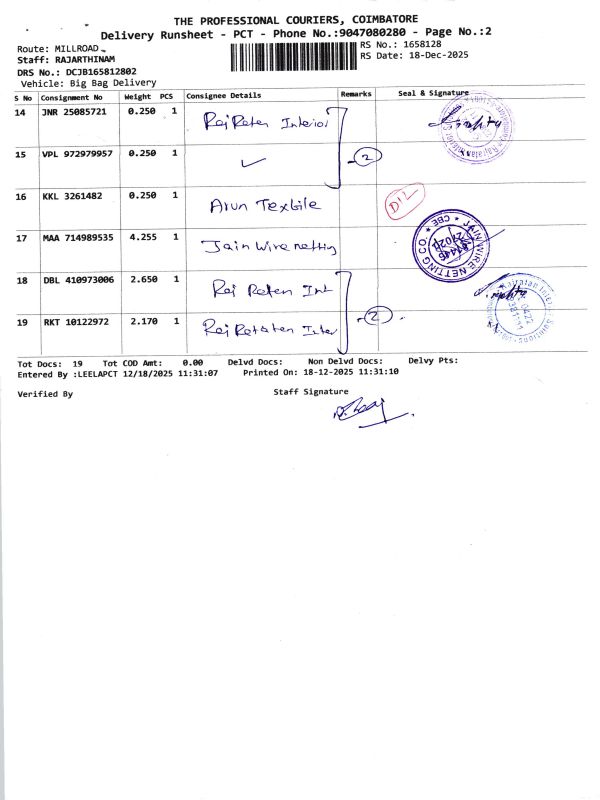 THE PROFESSIONAL COURIERS, COIMBATORE
Delivery Runsheet - PCT - Phone No.:9047080280 - Page No.:2
Route: MILLROAD
RS No.: 1658128
Staff: RAJARTHINAM
RS Date: 18-Dec-2025
DRS No.: DCJB165812802
Vehicle: Big Bag Delivery
S No Consignment No Weight PCS Consignee Details Remarks Seal & Signature
14 JNR 25085721 0.250 1 Raj Raten Interior
15 VPL 972979957 0.250 1 ✓ 2
16 KKL 3261482 0.250 1 Arun Textile D12
17 MAA 714989535 4.255 1 Jain Wire netting
JAIN WIRE NETTING CO. ★ CBE ★
18 DBL 410973006 2.650 1 Raj Raten Int
19 RKT 10122972 2.170 1 Raj Retaten Inter 2
Tot Docs: 19 Tot COD Amt: 0.00 Delvd Docs: Non Delvd Docs: Delvy Pts:
Entered By :LEELAPCT 12/18/2025 11:31:07 Printed On: 18-12-2025 11:31:10
Verified By Staff Signature